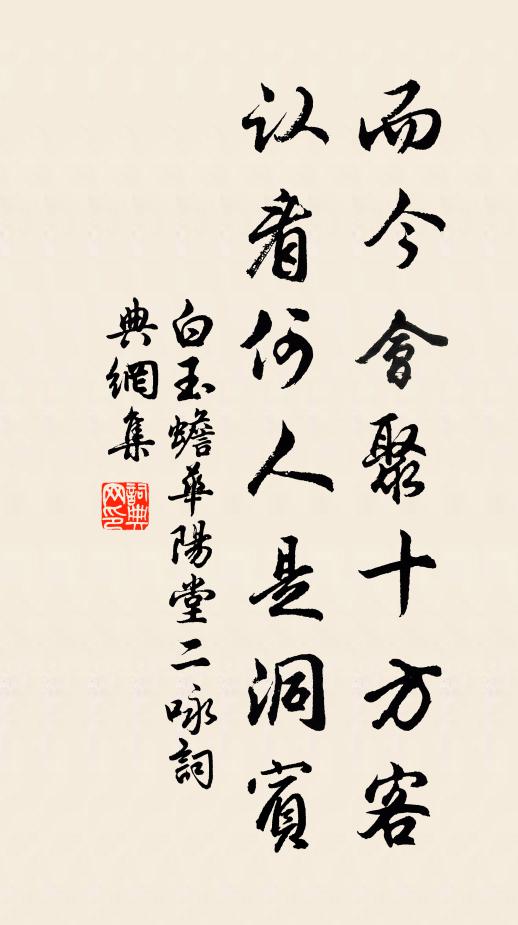 而今會聚十方客
認看何人是洞賓
白玉蟾華陽堂二咏詞
典網集
詞典网印